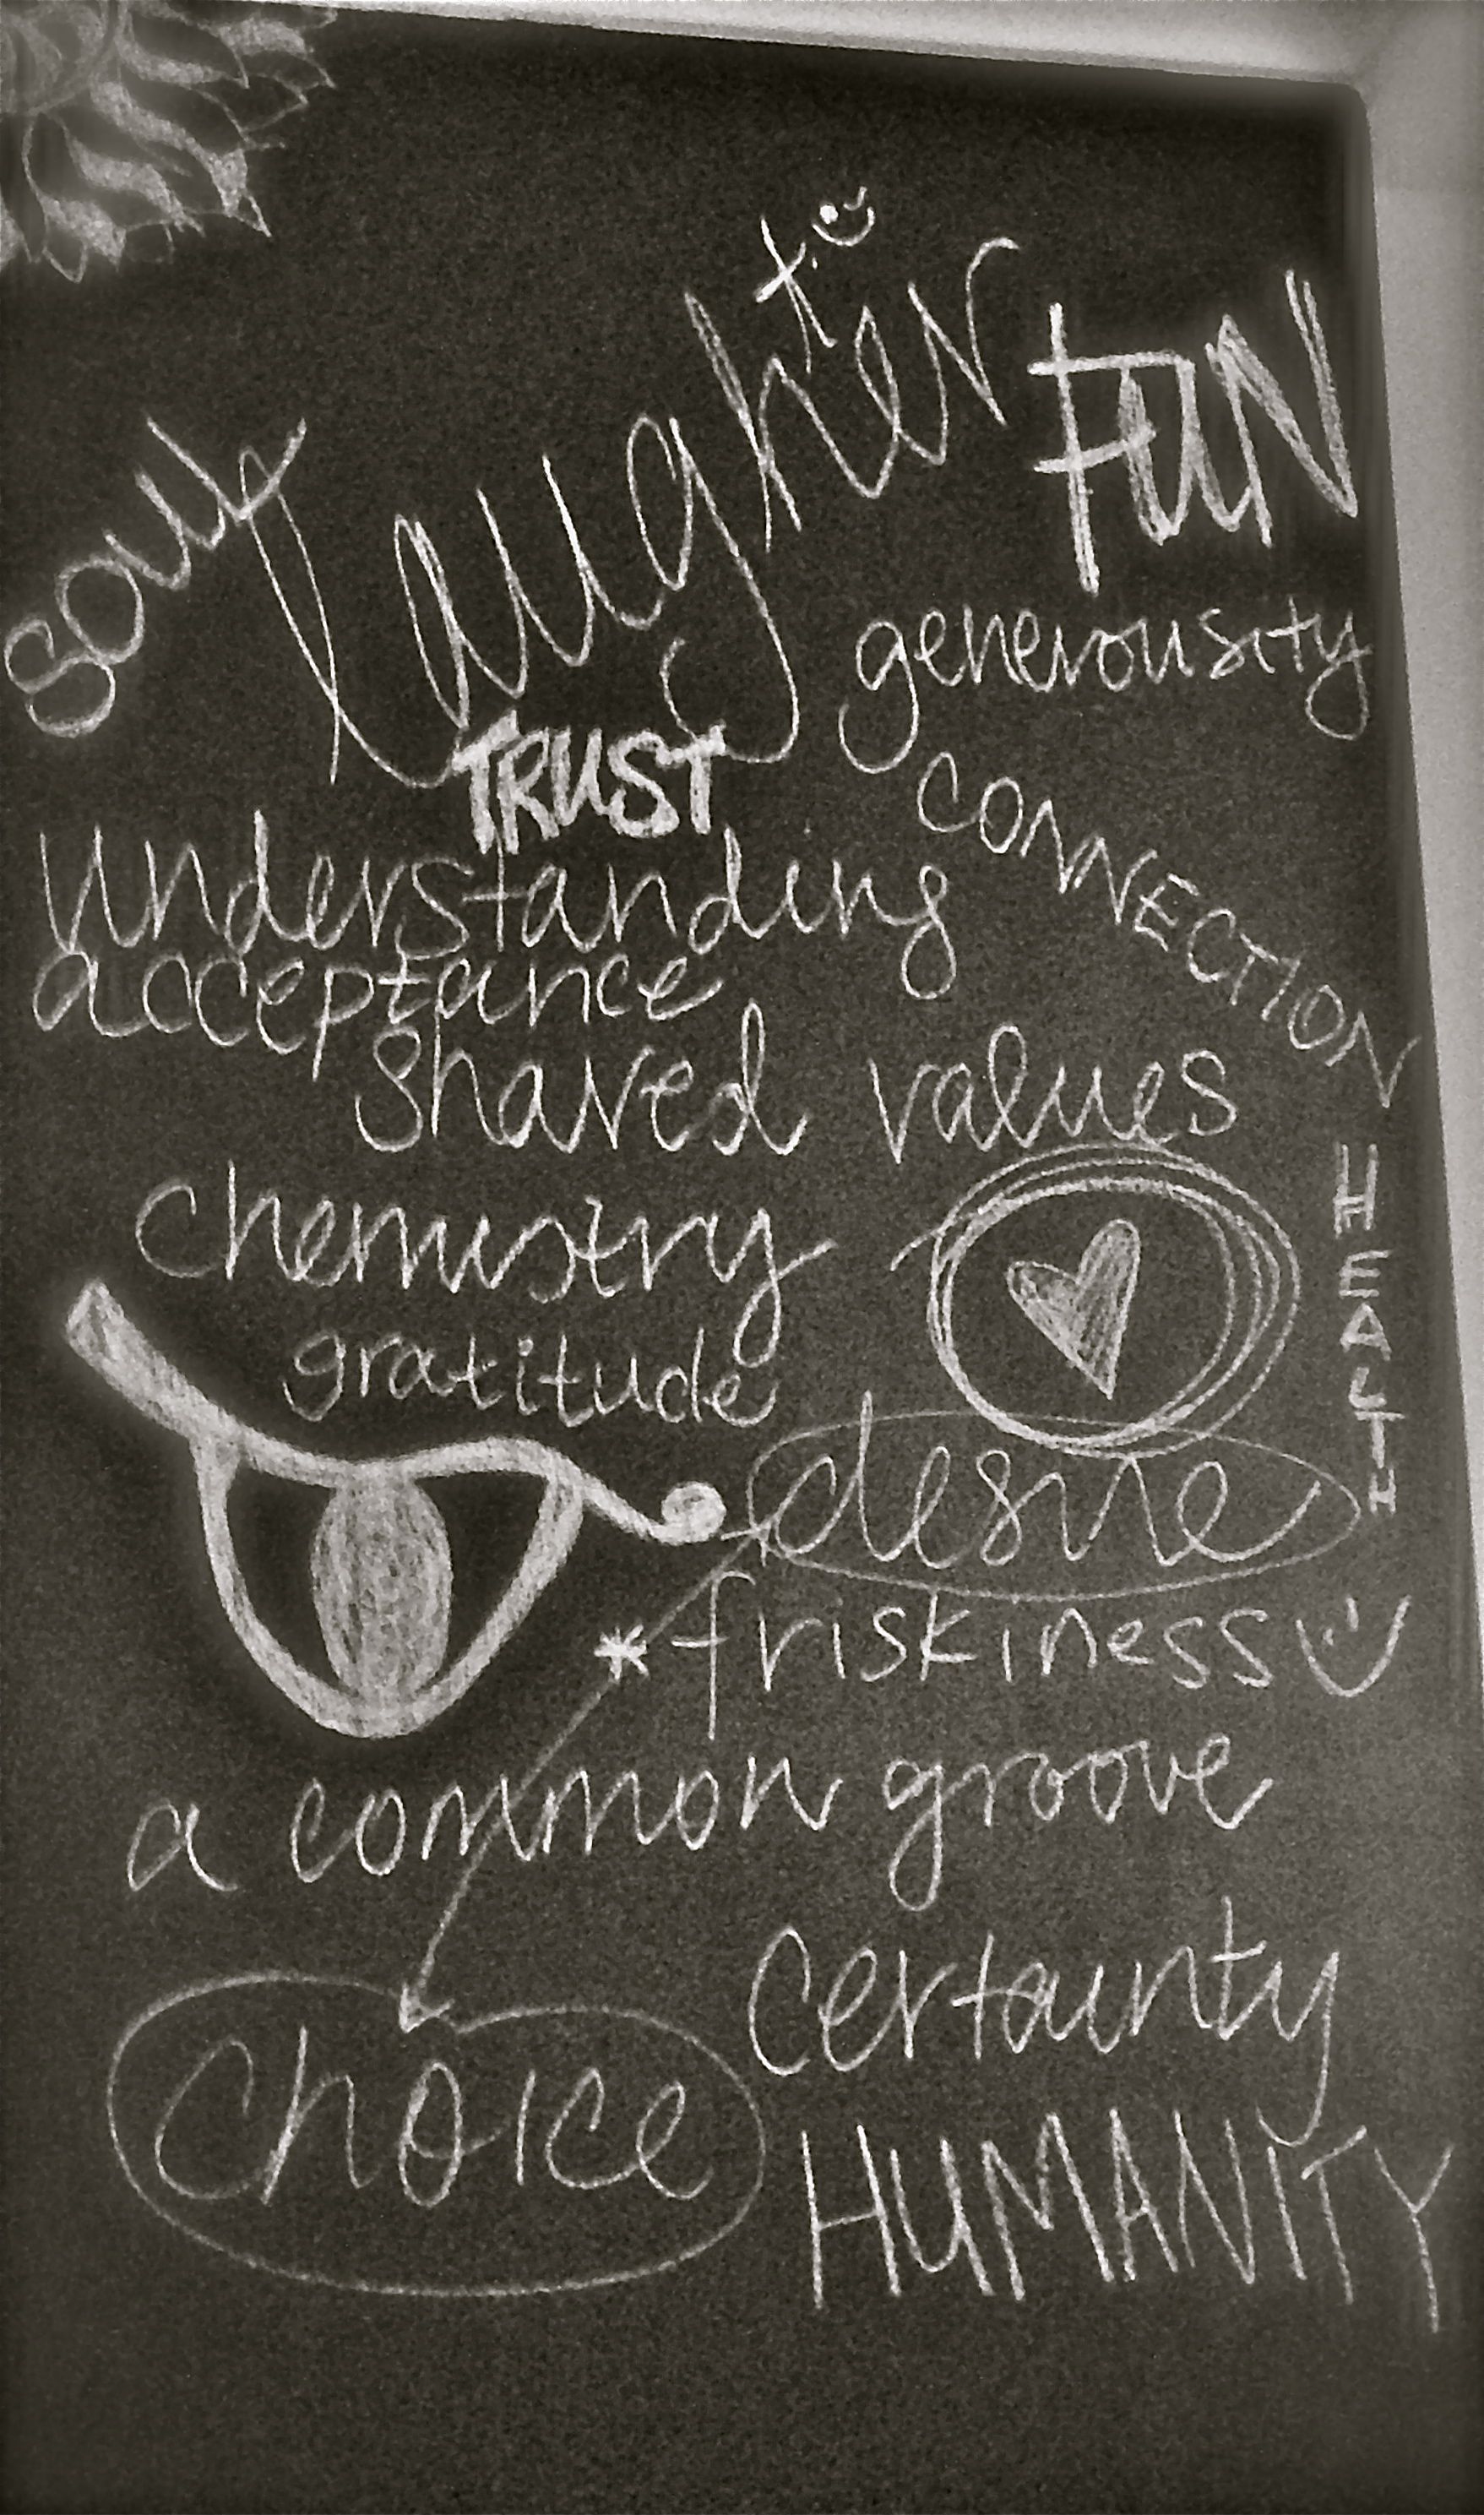 soul
laughter
FUN
generousity
TRUST
CONNECTION
understanding
acceptance
shared values
HEALTH
chemistry
gratitude
desire
*friskiness
a common groove
certainty
choice
HUMANITY